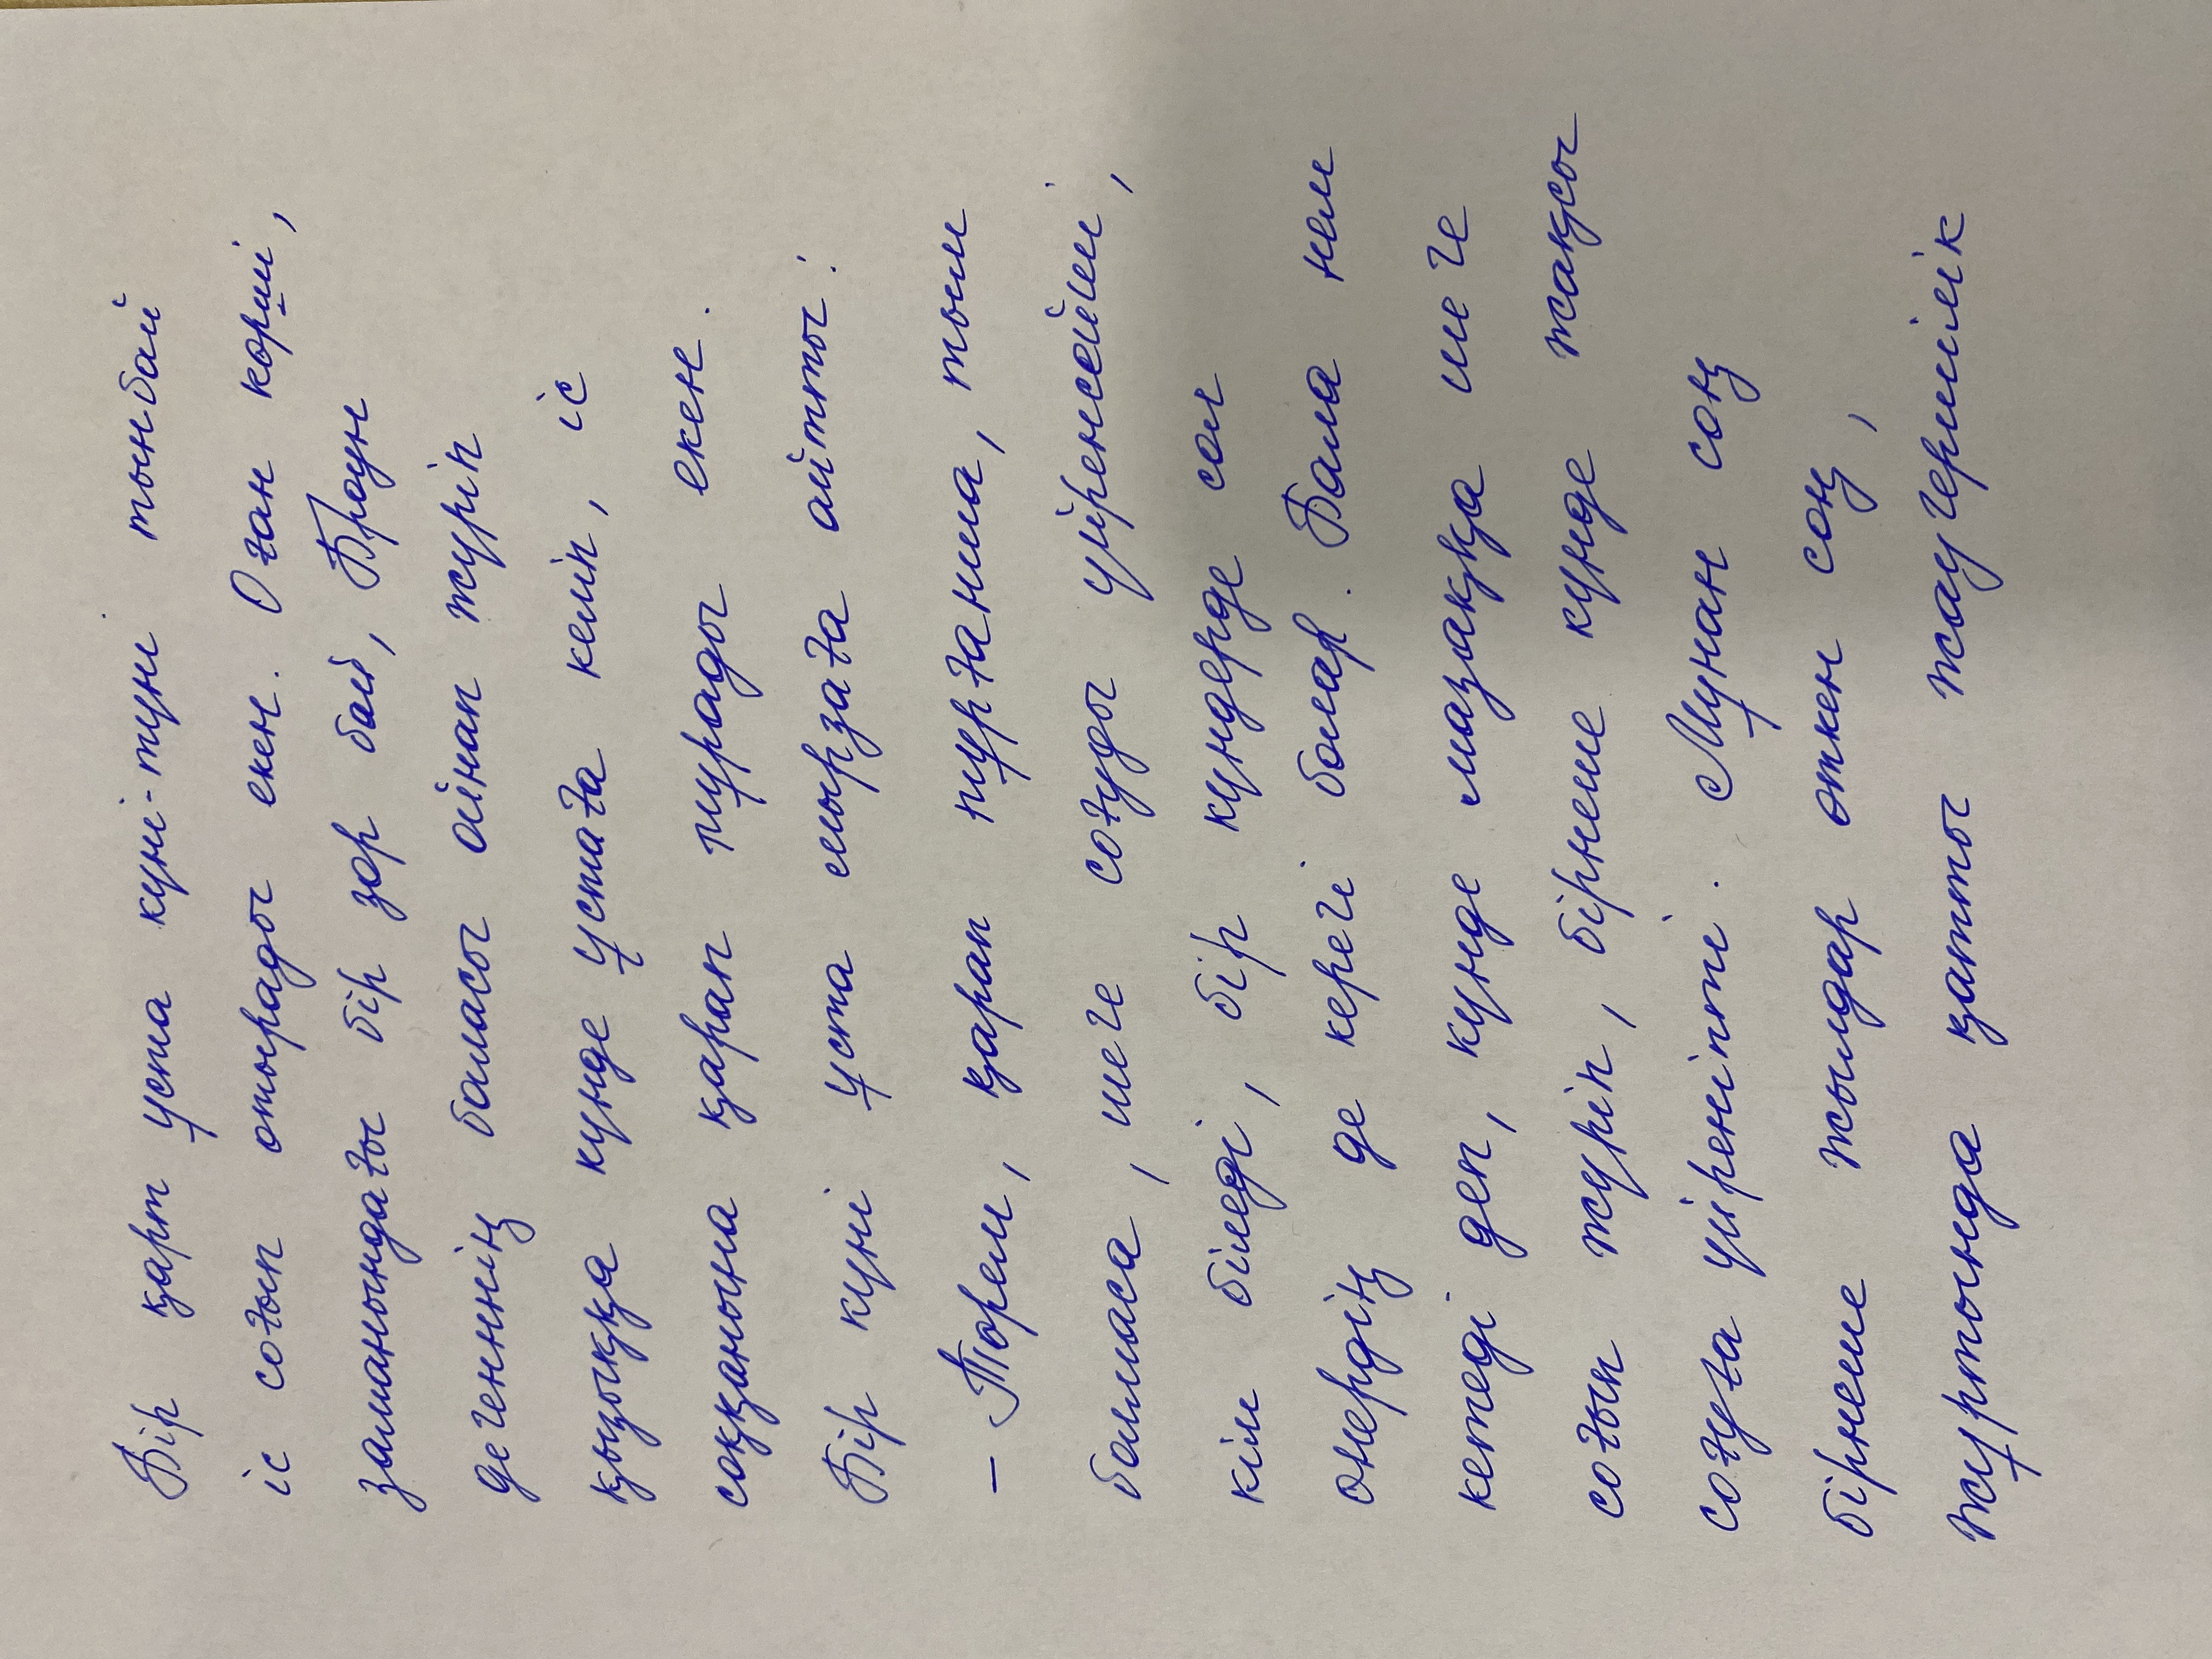 Бір қарт ұста күні-түні тынбай
іс соғып отырады екен. Оған көрші,
заманындағы бір зор бай, Броун
дегенннің баласы ойнап жүріп
қызыққа күнде ұстаға келіп, іс
соққанына қарап тұрады екен.
Бір күні ұста мырзаға айтты:
- Төрем, қарап тұрғанша, тым
болмаса, шеге соғуды үйренсейші,
кім біледі, бір күндерде сол
өнердің де керегі болар. Бала нем
кетеді деп, күнде мазаққа шеге
соғып жүріп, бірнеше күнде жақсы
соғуға үйреніпті. Мұнан соң
бірнеше жылдар өткен соң,
жұртында қатты жаугершілік